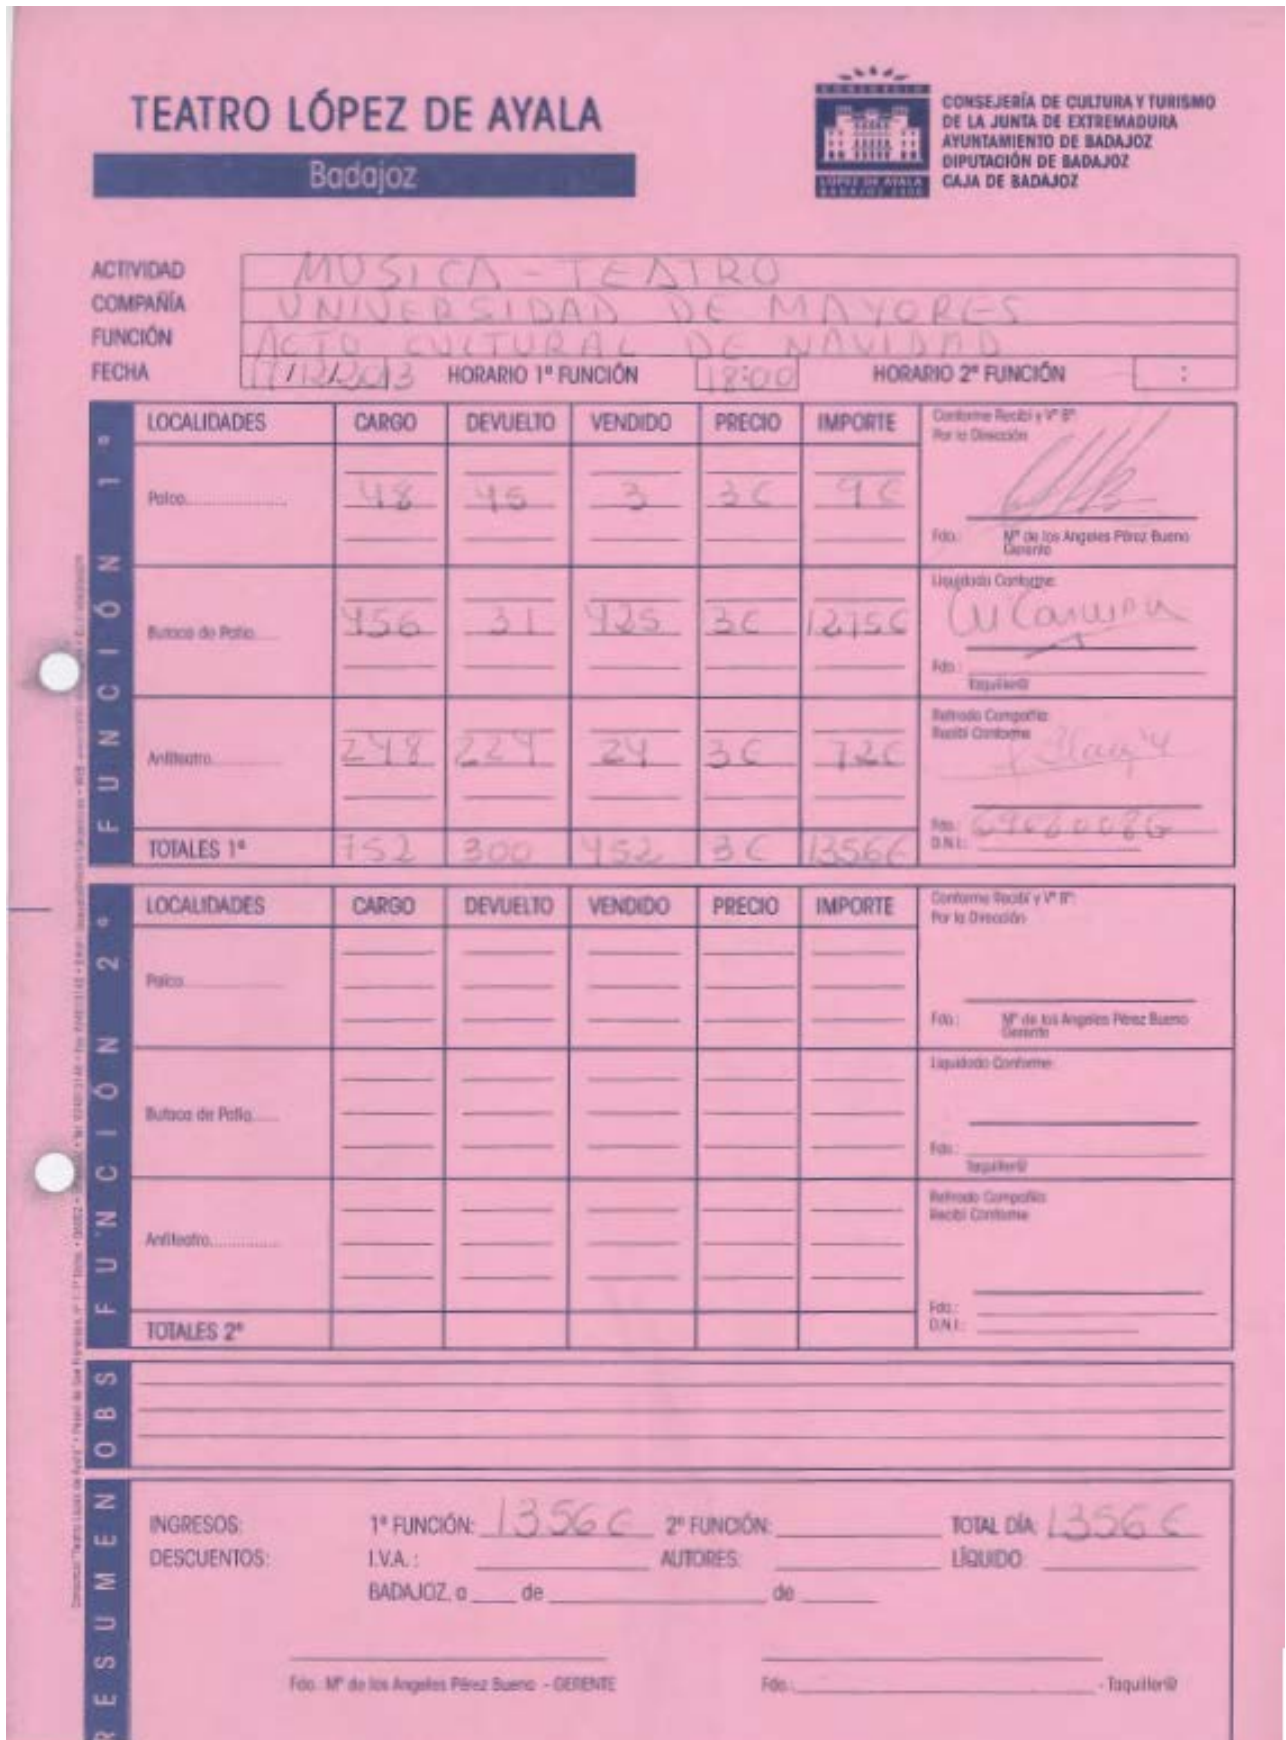 TEATRO LÓPEZ DE AYALA
Badajoz
CONSORCIO
LÓPEZ DE AYALA
BADAJOZ 2000
CONSEJERÍA DE CULTURA Y TURISMO
DE LA JUNTA DE EXTREMADURA
AYUNTAMIENTO DE BADAJOZ
DIPUTACIÓN DE BADAJOZ
CAJA DE BADAJOZ
ACTIVIDAD MUSICA - TEATRO
COMPAÑÍA UNIVERSIDAD DE MAYORES
FUNCIÓN ACTO CULTURAL DE NAVIDAD
FECHA 17/12/2013 HORARIO 1ª FUNCIÓN 18:00 HORARIO 2ª FUNCIÓN :
FUNCIÓN 1ª
LOCALIDADES CARGO DEVUELTO VENDIDO PRECIO IMPORTE
Palco 48 45 3 3€ 9€
Butaca de Patio 456 31 425 3€ 1275€
Anfiteatro 248 224 24 3€ 72€
TOTALES 1ª 752 300 452 3€ 1356€
Conforme Recibí y Vº Bº:
Por la Dirección
Fdo.: Mª de los Angeles Pérez Bueno
Gerente
Liquidado Conforme:
Fdo.:
Taquiller@
Retirado Compañía:
Recibí Conforme
Fdo.:
D.N.I.:
FUNCIÓN 2ª
LOCALIDADES CARGO DEVUELTO VENDIDO PRECIO IMPORTE
Palco
Butaca de Patio
Anfiteatro
TOTALES 2ª
Conforme Recibí y Vº Bº:
Por la Dirección
Fdo.: Mª de los Angeles Pérez Bueno
Gerente
Liquidado Conforme:
Fdo.:
Taquiller@
Retirado Compañía:
Recibí Conforme
Fdo.:
D.N.I.:
OBS
RESUMEN
INGRESOS: 1ª FUNCIÓN: 1356€ 2ª FUNCIÓN: TOTAL DÍA: 1356€
DESCUENTOS: I.V.A.: AUTORES: LÍQUIDO:
BADAJOZ, a de de
Fdo. Mª de los Angeles Pérez Bueno - GERENTE
Fdo.: - Taquiller@